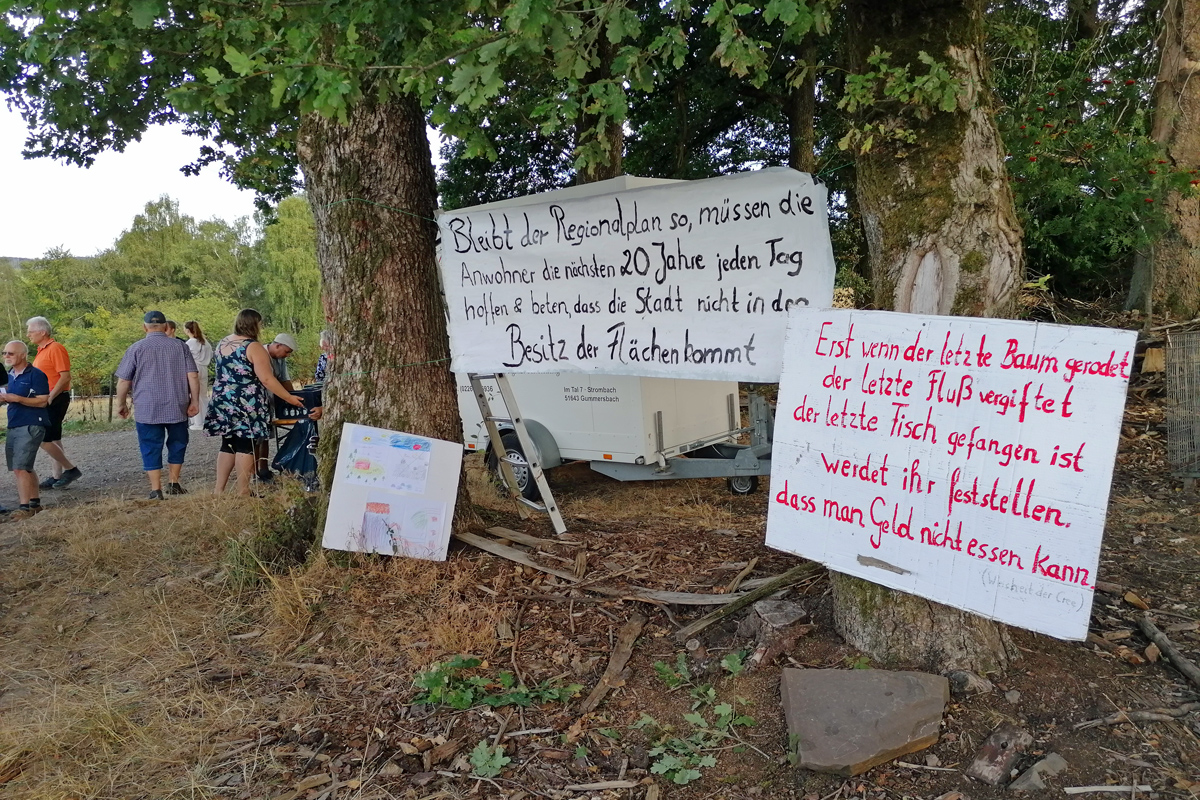 Bleibt der Regionalplan so, müssen die
Anwohner die nächsten 20 Jahre jeden Tag
hoffen & beten, dass die Stadt nicht in den
Besitz der Flächen kommt
Im Tal 7 · Strombach
51643 Gummersbach
Erst wenn der letzte Baum gerodet
der letzte Fluß vergiftet
der letzte Fisch gefangen ist
werdet ihr feststellen.
dass man Geld nicht essen kann
(Weisheit der Cree)